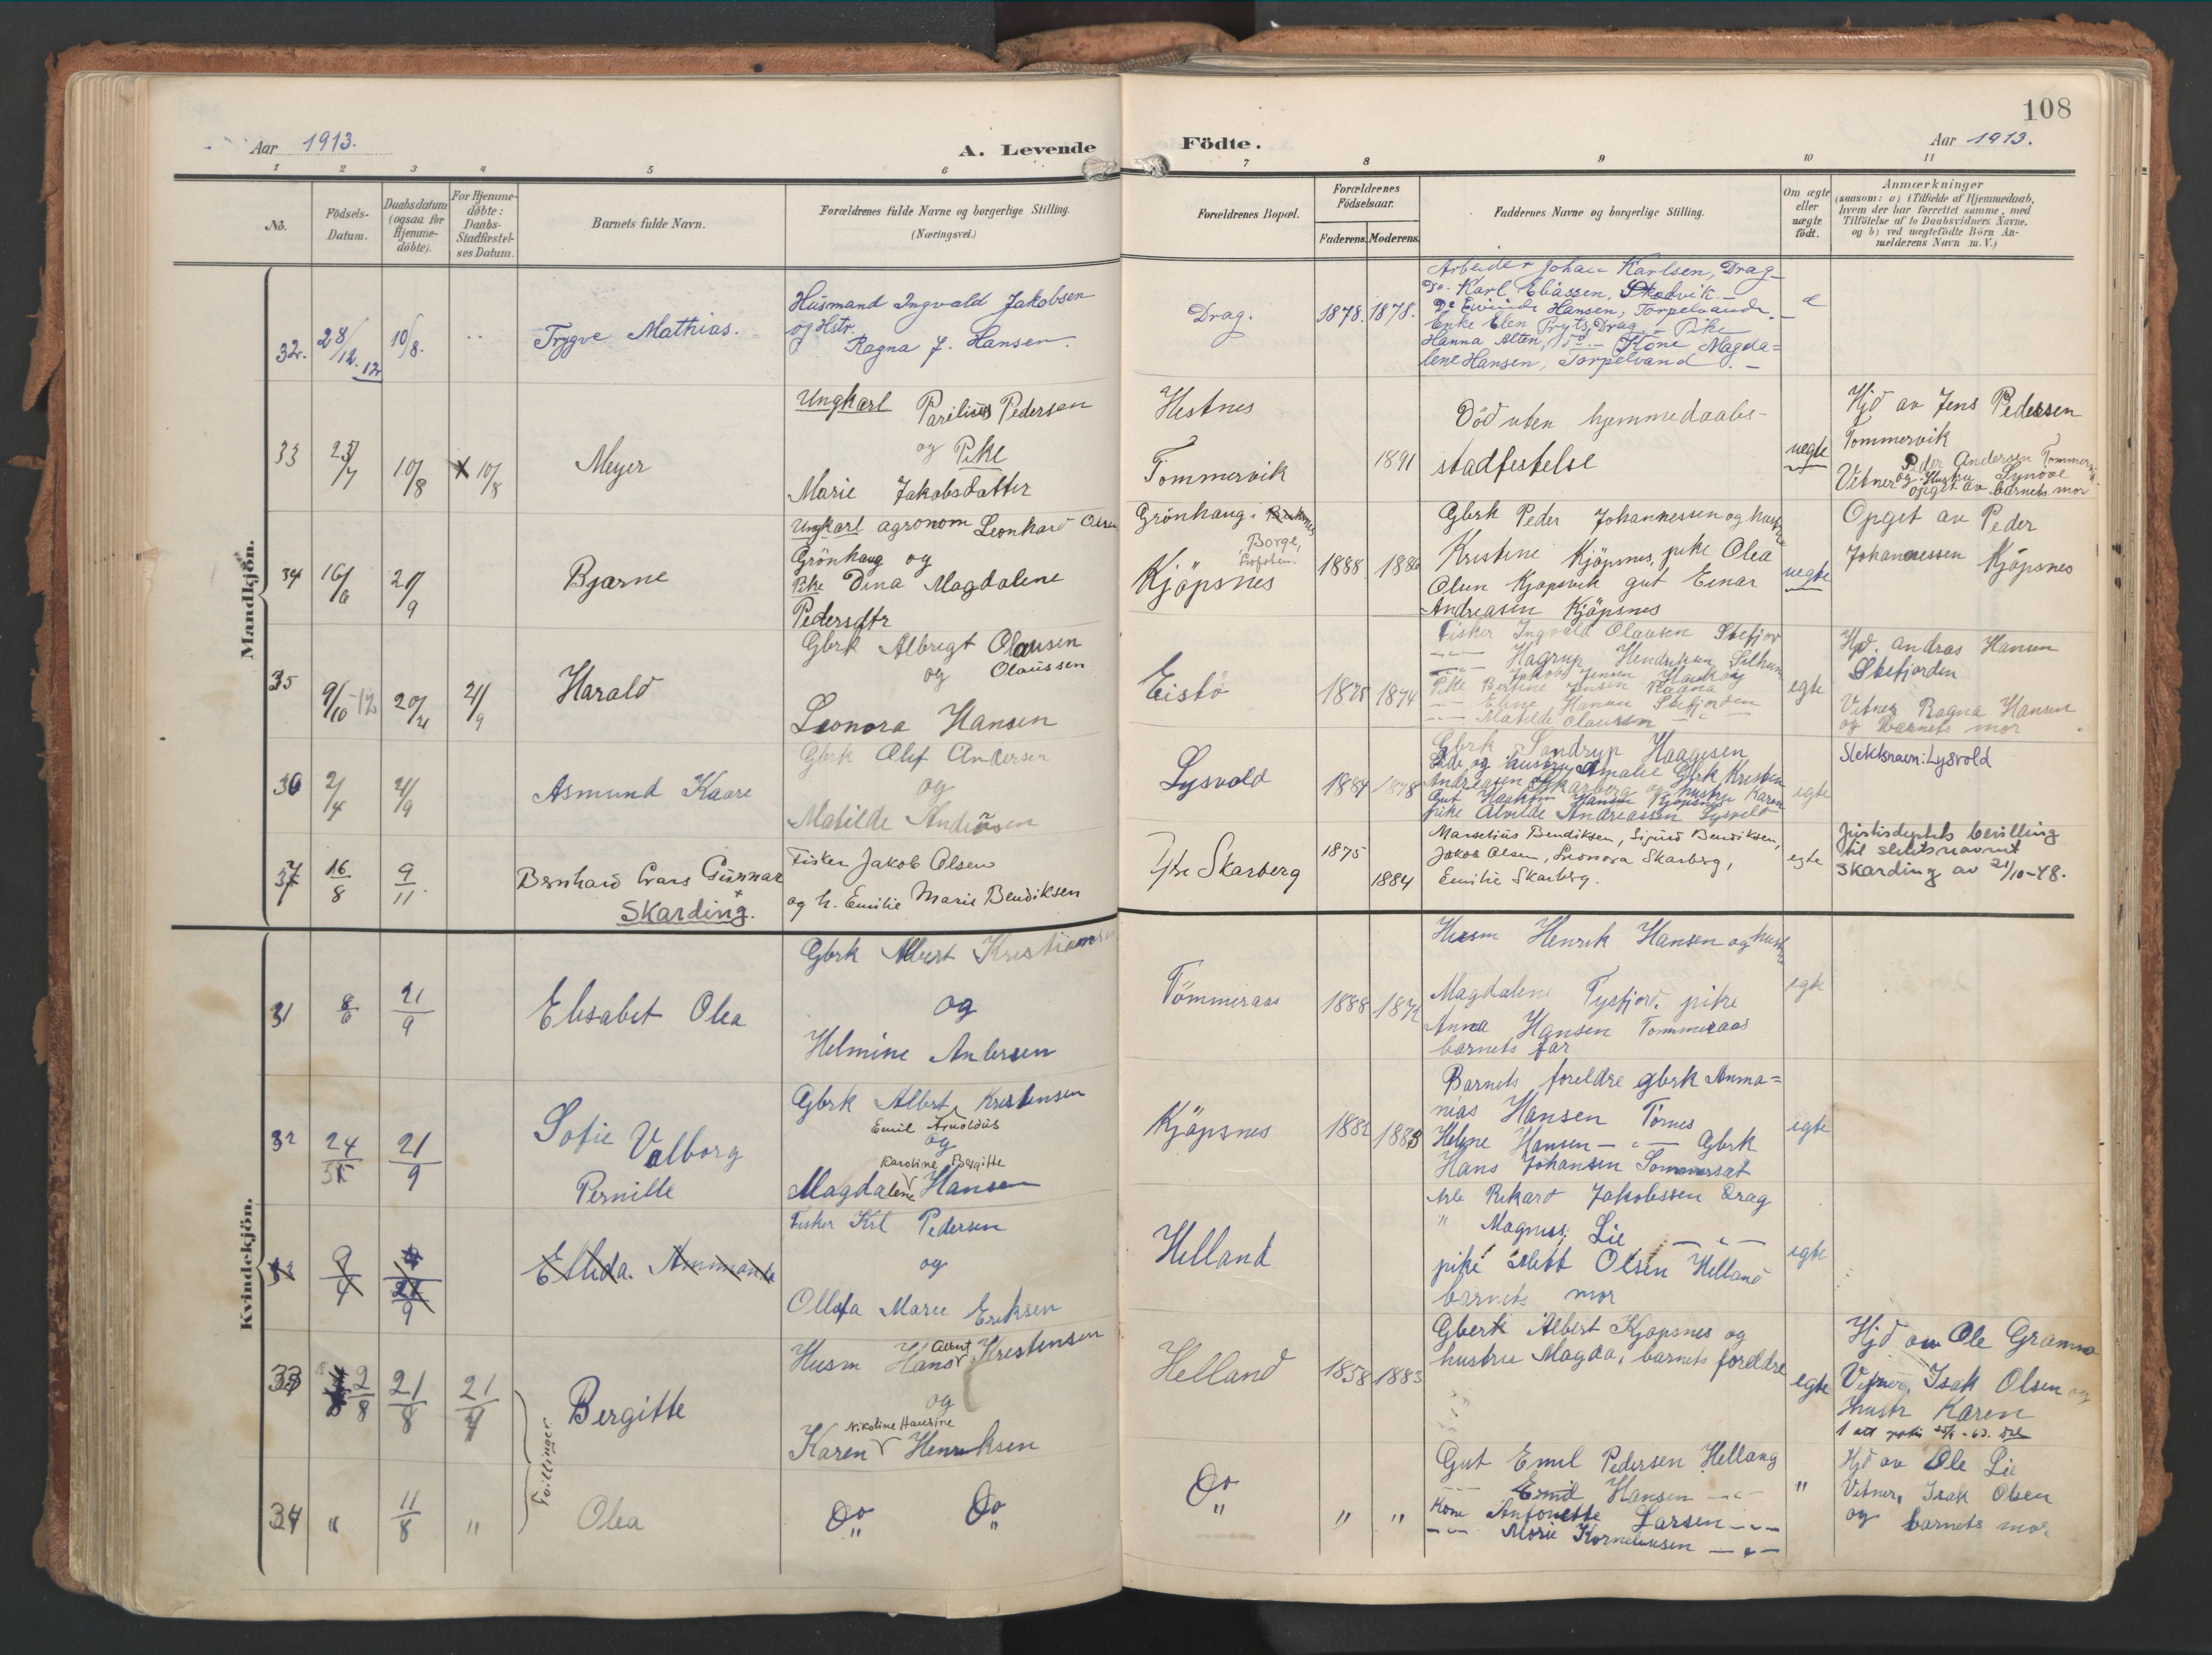 108
Aar 1913.
A. Levende
Födte.
Aar 1913.
1 2 3 4 5 6 7 8 9 10 11
No.
Födsels-
Datum.
Daabsdatum
(ogsaa for
Hjemme-
döbte).
For Hjemme-
döbte:
Daabs-
Stadfæstel-
ses Datum.
Barnets fulde Navn.
Forældrenes fulde Navne og borgerlige Stilling.
(Næringsvei.)
Forældrenes Bopæl.
Forældrenes
Födselsaar.
Faderens. Moderens.
Faddernes Navne og borgerlige Stilling.
Om ægte
eller
uægte
födt.
Anmærkninger
(saasom: a) i Tilfælde af Hjemmedaab,
hvem der har forrettet samme, med
Tilföielse af to Daabsvidners Navne,
og b) ved uægtefödte Börn An-
melderens Navn m. V.)
Mandkjön.
32. 28/12. 12 10/8. Trygve Mathias.
Husmand Ingvald Jakobsen
og Hstr.
Ragna J. Hansen.
Drag. 1878. 1878.
Arbeider Johan Karlsen, Drag
Do. Karl Eliassen, Skodvik.
Do Hansen, Torpelvand.
Enke Elen Fryts, Drag. - Pike
Hanna Alten, Do. - Kone Magda=
lene Hansen, Torpelvand.
33 23/7 10/8 x 10/8 Meyer
Ungkarl Parelius Pedersen
og Pike
Marie Jakobsdatter
Hestnes
Tommervik 1891
Död uten hjemmedaabs-
stadfestelse
uegte
Hjd av Jens Pedersen
Tommervik
Peder Andersen
Vitner og Hustru Synöve
opget av barnets mor
34 16/6 21/9 Bjarne
Ungkarl agronom Leonhard Olsen
Grönhaug og
Pike Dina Magdalene
Pedersdtr
Grönhaug i
Borge,
Lofoten
Kjöpsnes 1888 1886
Gbrk Peder Johannessen og hustru
Kristine Kjöpsnes, pike Olea
Olsen Kjopsvik gut Einar
Andreasen Kjöpsnes
uegte
Opget av Peder
Johannessen Kjöpsnes
35 9/10-12 20/4 21/9 Harald
Gbrk Albregt Olausen
og Olaussen
Leonora Hansen
Eistö 1875 1874
Fisker Ingvald Olausen Stefjor
Hagrup Hendriksen
Jensen
Pike Bertine Jensen
Eline Hansen Stefjorden
Matilde Olausen
egte
Hjd. Andras Hansen
Stefjorden
Vitner Ragna Hansen
og barnets mor
36 2/4 21/9 Asmund Kaare
Gbrk Olef Andersen
og
Matilde Andersen
Lysvold 1884
Gbrk Sandrup Haagesen
og hustru Amalie Gbrk Kristian
Andreasen Skarberg og hustru Karen
Gut Haakon Hansen Kjöpsnes
pike Alvilde Andreassen Lysvold
egte
Slektsnavn: Lysvold
37 16/8 9/11. Bernhard Lars Gunnar
+
SKarding.
Fisker Jakob Olsen
og h. Emilie Marie Bendiksen
Ytre Skarberg 1875 1884
Marselius Bendiksen, Sigurd Bendiksen,
Jakob Olsen, Leonora Skarberg,
Emilie Skarberg.
egte
Justisdeptets bevilling
til slektsnavnet
Skarding av 21/10-48.
Kvindekjön.
31 8/6 21/9 Elisabet Olea
Gbrk Albert Kristiansen
og
Helmine Andersen
Tömmeraas 1888 1872
Husm Henrik Hansen og hustru
Magdalene Tysfjord. pike
Anna Hansen Tommeraas
barnets far
egte
32 24/5 21/9 Sofie Valborg
Pernille
Gbrk Albert Kristensen
Emil Arnoldus
og
Karoline Bergitte
Magdalene Hansen
Kjöpsnes 1882 1883
Barnets foreldre gbrk Anma=
nias Hansen Tornes
Helene Hansen - " - Gbrk
Hans Johansen Sommerset
egte
9/4 21/9 Ellida. Ammanda
Fisker Krl Pedersen
og
Ollefa Marie Eriksen
Helland
Arb Rikard Jakobssen Drag
" Magnus Lie - " -
pike Olsen Helland
barnets mor
egte
33 2/8 21/8 21/9 Bergitte
Tvillinger
Husm Hans Albert Kristensen
og
Nikoline Hansine
Karen Henriksen
Helland 1858 1883
Gberk Albert Kjopsnes og
hustru Magda, barnets foreldre
egte
Hjd av Ole Gramma
Vitner, Isak Olsen og
hustr Karen
1 att
34 " 11/8 " Olea
Do " Do "
Do " " "
Gut Emil Pedersen Hellang
Emil Hansen - " -
Kone Antonette Larsen - " -
- " - Marie Korneliusen - " -
"
Hjd av Ole Lie
Vitner, Isak Olsen
og barnets mor